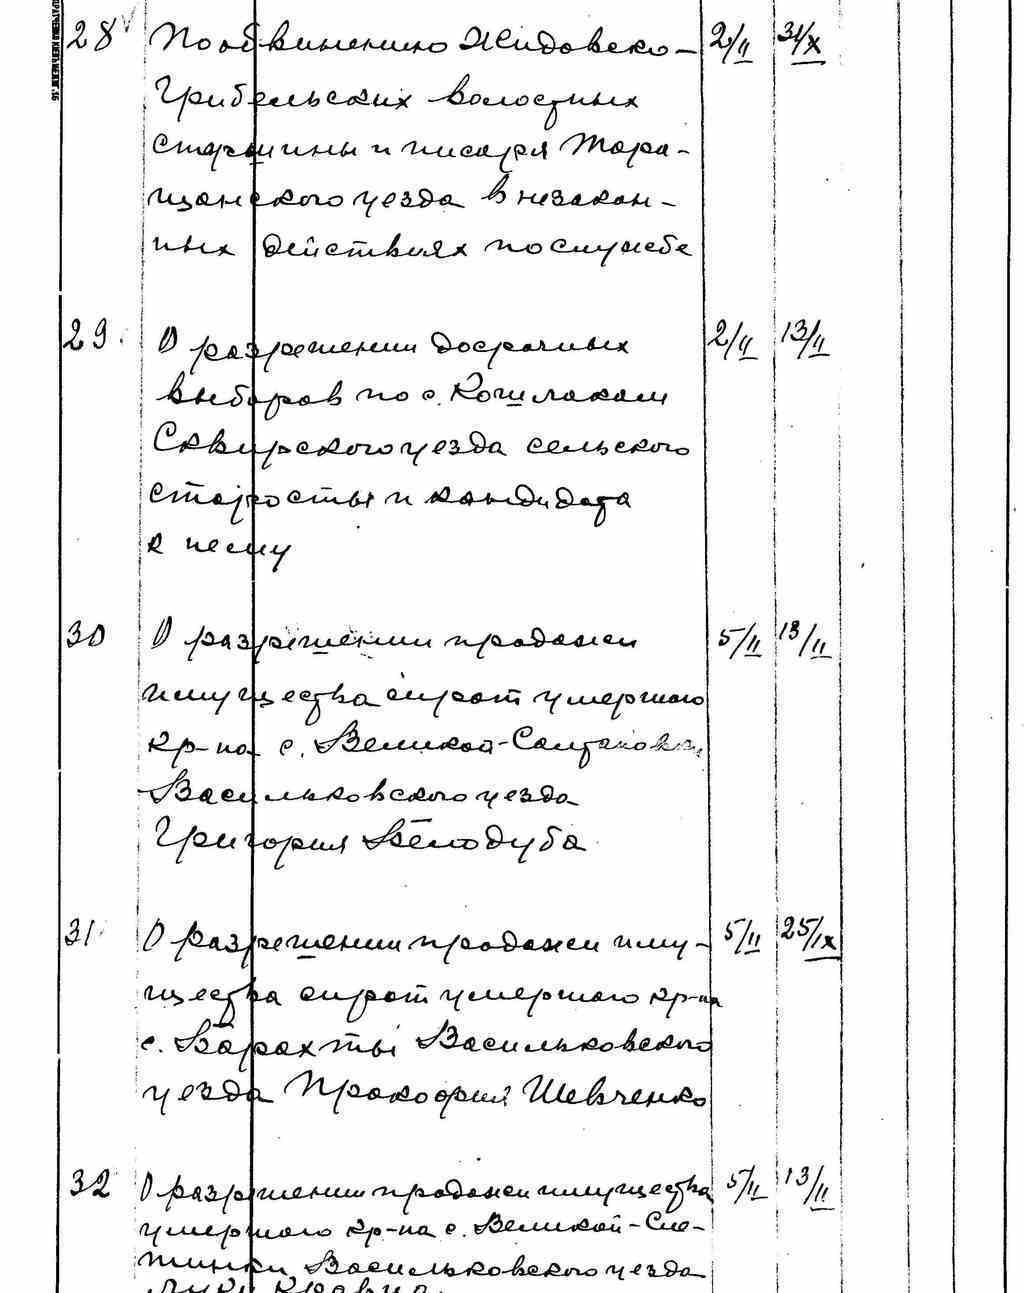 28 По обвинению Жидовско- 2/II 31/X
Грибельских волостных
старшины и писаря Тара-
щанского уезда в незакон-
ных действиях по службе
29. О разрешении досрочных 2/II 13/II
выборов по с. Кошлакам
Сквирского уезда сельского
старосты и кандидата
к нему
30 О разрешении продажи 5/II 13/II
имущества сирот умершого
кр-на с. Великой-Солтановки
Васильковского уезда
Григория Белодуба
31 О разрешении продажи иму- 5/II 25/IX
щества сирот умершого кр-на
с. Барахты Васильковского
уезда Прокофия Шевченко
32 О разрешении продажи имущества 5/II 13/II
умершого кр-на с. Великой-Сне-
тинки Васильковского уезда
Луки Кравца